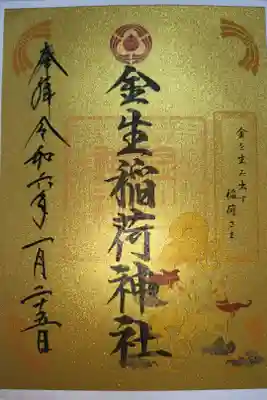 金を生み出す
稲荷さま
金生稲荷神社
奉拝 令和六年一月二十五日